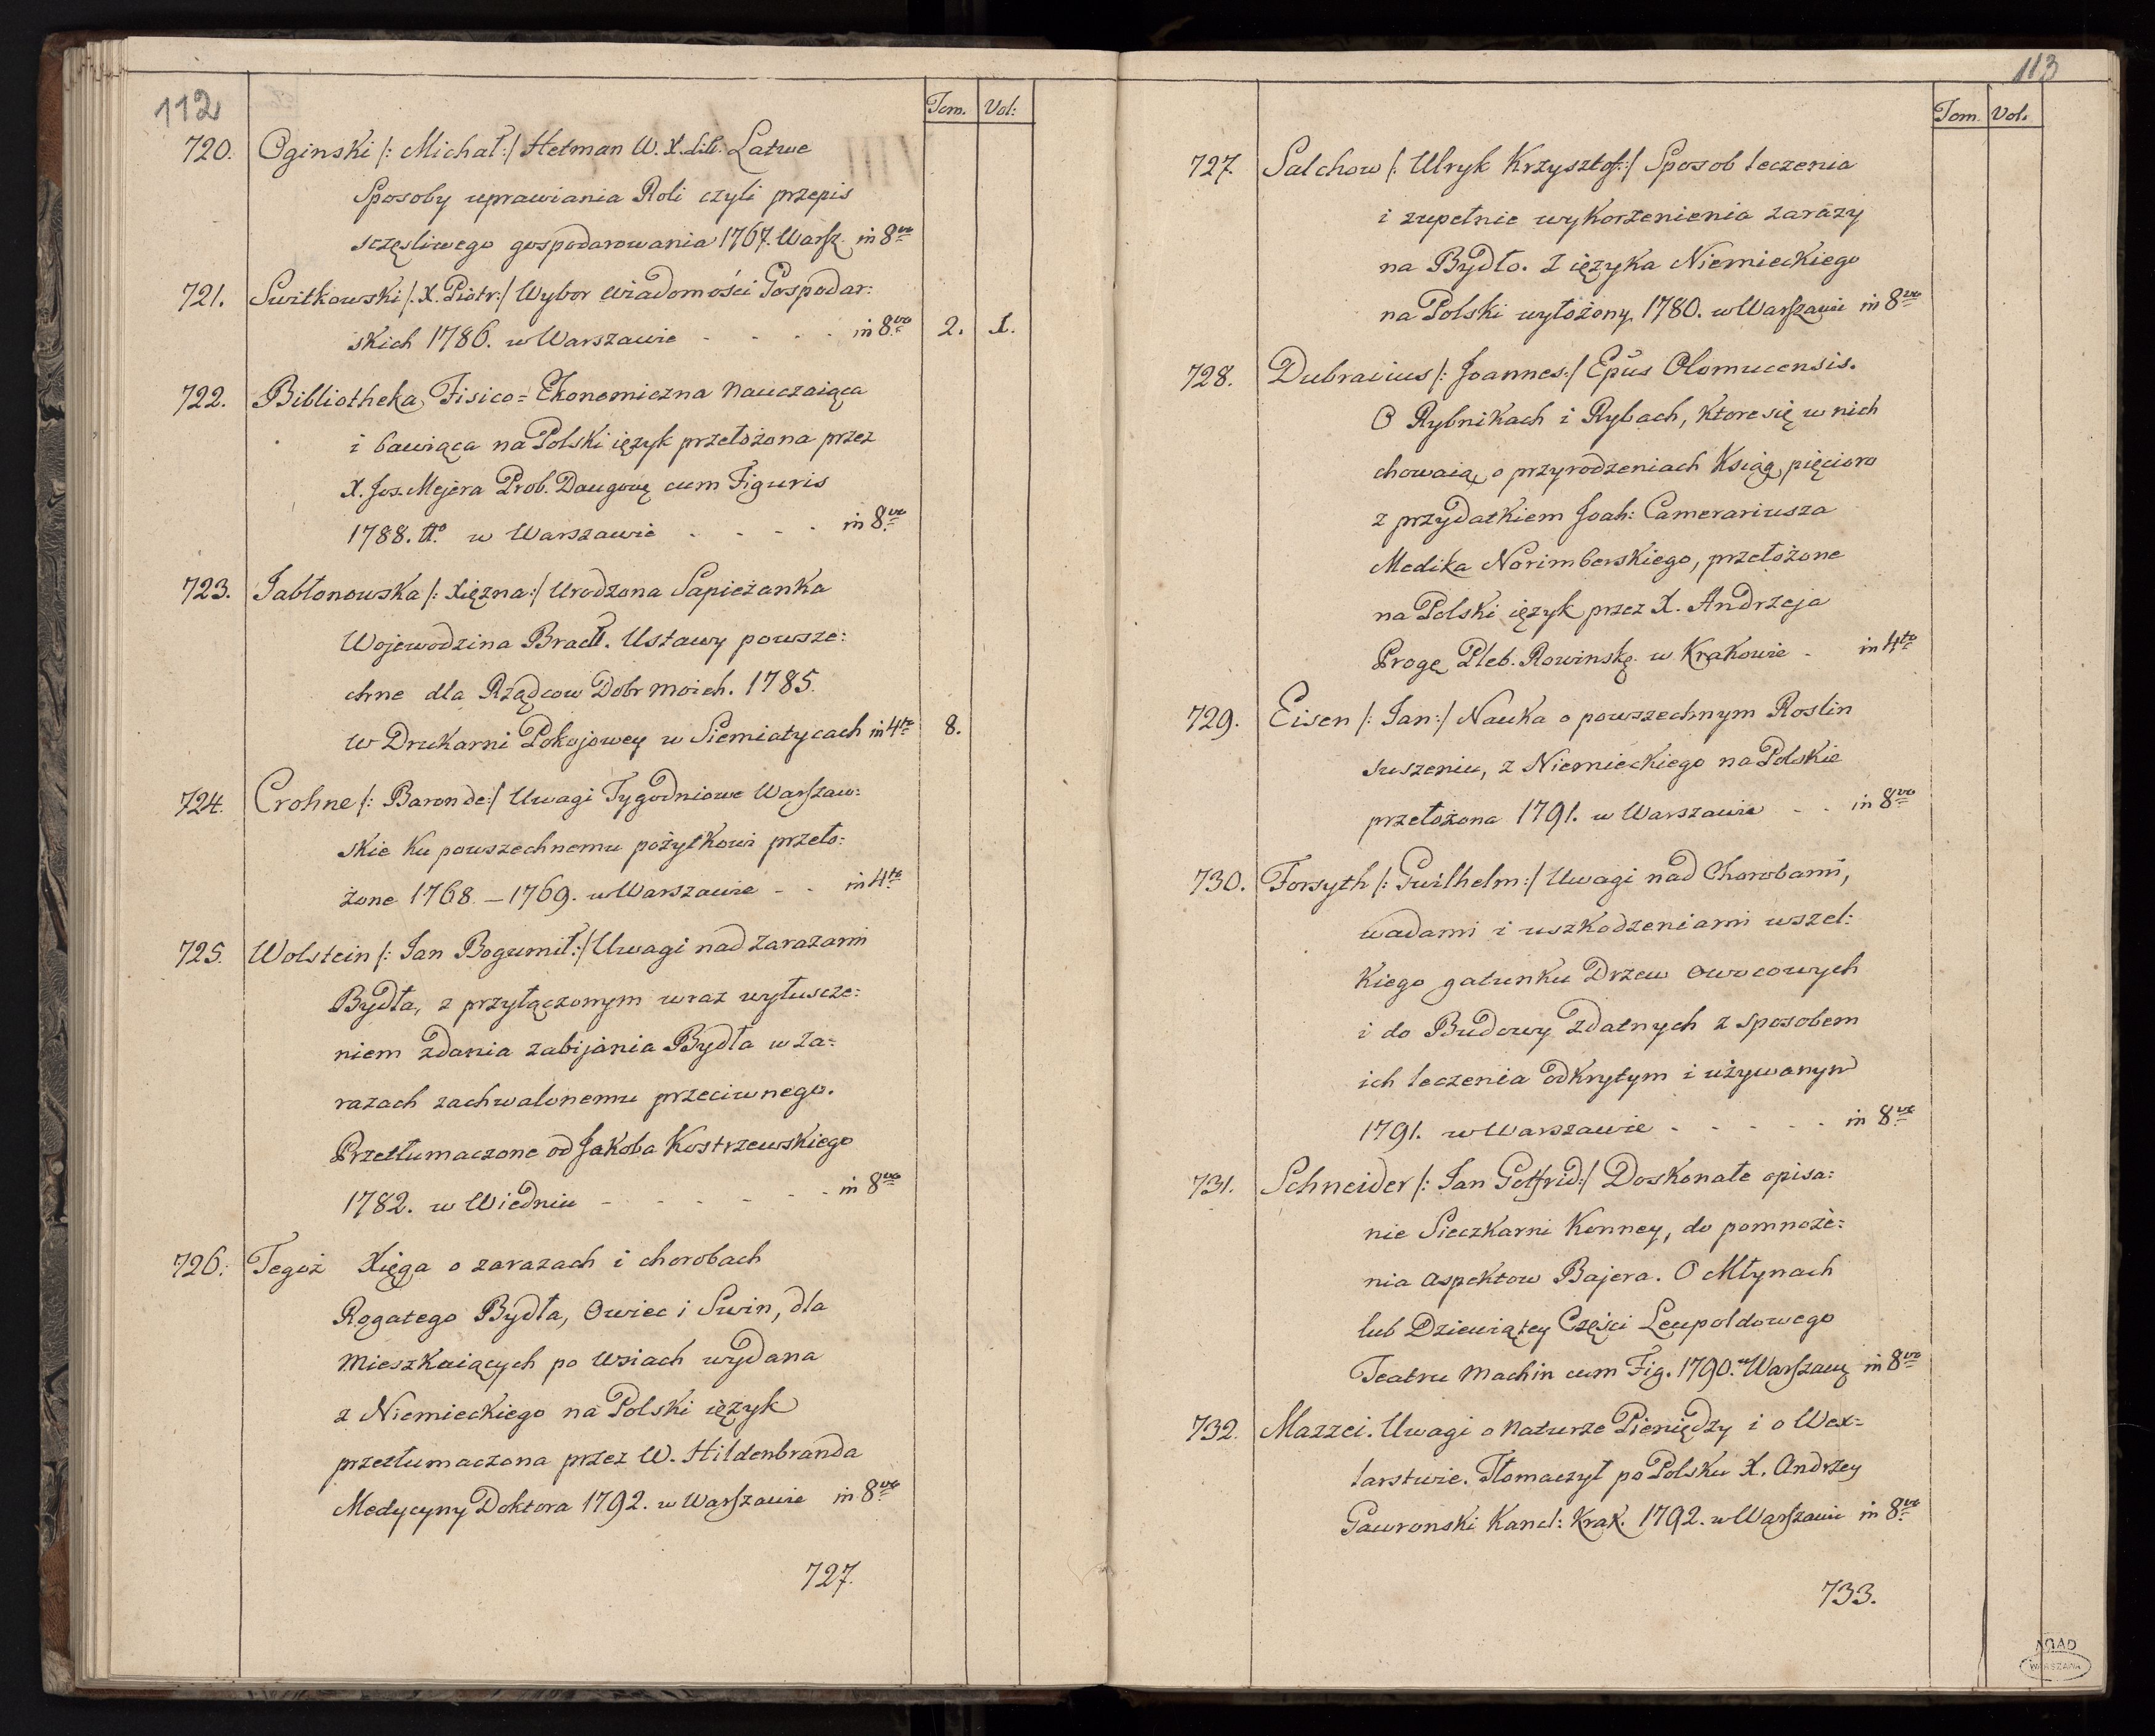 112
Tom. Vol:
720. Oginski /: Michał :/ Hetman W. X. Lit. Latwe
Sposoby uprawiania Roli czyli przepis
sczęsliwego gospodarowania 1767. Warsz. in 8vo
721. Switkowski /: X. Piotr :/ Wybor Wiadomości Gospodar:
skich 1786. w Warszawie - - - - in 8vo 2. 1.
722. Bibliotheka Fisico = Ekonomiczna Nauczaiąca
i bawiąca na Polski ięzyk przełożona przez
X. Jos. Mejera Prob. Daugowę cum Figuris
1788. Ao w Warszawie - - - - in 8vo
723. Jabłonowska /: Xięzna :/ Urodzona Sapieżanka
Wojewodzina Bracł. Ustawy powsze:
chne dla Rządcow Dobr moich. 1785.
w Drukarni Pokojowey w Siemiatycach in 4to 8.
724. Crohne /: Baron de :/ Uwagi Tygodniowe Warszaw:
skie ku powszechnemu pożytkowi przeło:
żone 1768. - 1769. w Warszawie - - in 4to
725. Wolstein /: Jan Bogumił :/ Uwagi nad zarazami
Bydła, z przyłączonym wraz wyłuscze:
niem zdania zabijania Bydła w za:
razach zachwalonemu przeciwnego.
Przetłumaczone od Jakoba Kostrzewskiego
1782. w Wiedniu - - - - - - in 8vo
726. Tegoż Xięga o zarazach i chorobach
Rogatego Bydła, Owiec i Swin, dla
Mieszkaiących po Wsiach wydana
z Niemieckiego na Polski ięzyk
przetłumaczona przez W. Hildenbranda
Medycyny Doktora 1792. w Warszawie in 8vo
727.
113
Tom. Vol.
727. Salchow /: Ulryk Krzysztof :/ Sposob leczenia
i zupełnie wykorzenienia zarazy
na Bydło. Z ięzyka Niemieckiego
na Polski wyłożony 1780. w Warszawie in 8vo
728. Dubravius /: Joannes :/ Epus Olomucensis.
O Rybnikach i Rybach, ktore się w nich
chowaią, o przyrodzeniach Ksiąg pięcioro
z przydatkiem Joah: Camerariusza
Medika Norimberskiego, przełożone
na Polski ięzyk przez X. Andrzeja
Progę Pleb. Rowinskę. w Krakowie - in 4to
729. Eisen /: Jan :/ Nauka o powszechnym Roslin
suszeniu, z Niemieckiego na Polskie
przełożona 1791. w Warszawie - - in 8vo
730. Forsyth /: Gwilhelm :/ Uwagi nad Chorobami,
wadami i uszkodzeniami wszel:
kiego gatunku Drzew owocowych
i do Budowy zdatnych z sposobem
ich leczenia odkrytym i używanym
1791. w Warszawie - - - - - in 8vo
731. Schneider /: Jan Gotfrid :/ Doskonałe opisa:
nie Sieczkarni Konney, do pomnoże:
nia aspektow Bajera. O Młynach
lub Dziewiątey Części Leupoldowego
Teatru Machin cum Fig. 1790. w Warszawę in 8vo
732. Mazzei. Uwagi o Naturze Pieniędzy i o Wex=
larstwie. Tłomaczył po Polsku X. Andrzey
Gawronski Kancl: Krak. 1792. w Warszawie in 8vo
733.
AGAD
WARSZAWA